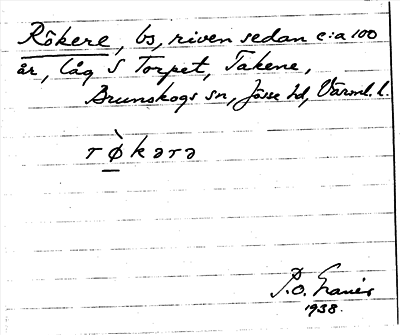 Rökere, bs, riven sedan c:a 100
år, låg S Torpet, Takene,
Brunskogs sn, Jösse hd, Värml. l.
r ø̀ k ə r ə
P.O. Granér
1938.